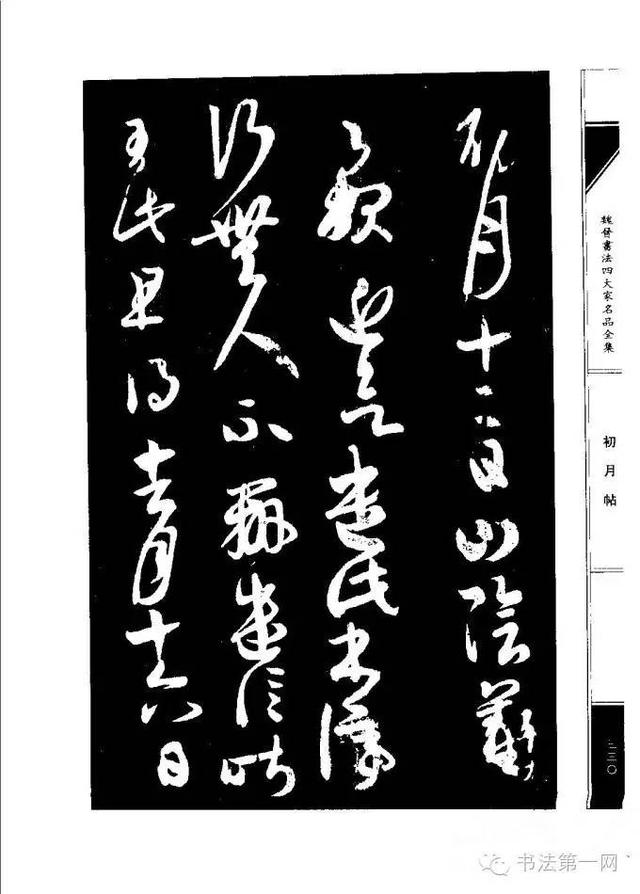 初月十二日山陰羲之
報近欲遣此書停
行無人不辦遣信昨
至此且得去月十六日
魏晉書法四大家名品全集
初月帖
二三〇
书法第一网